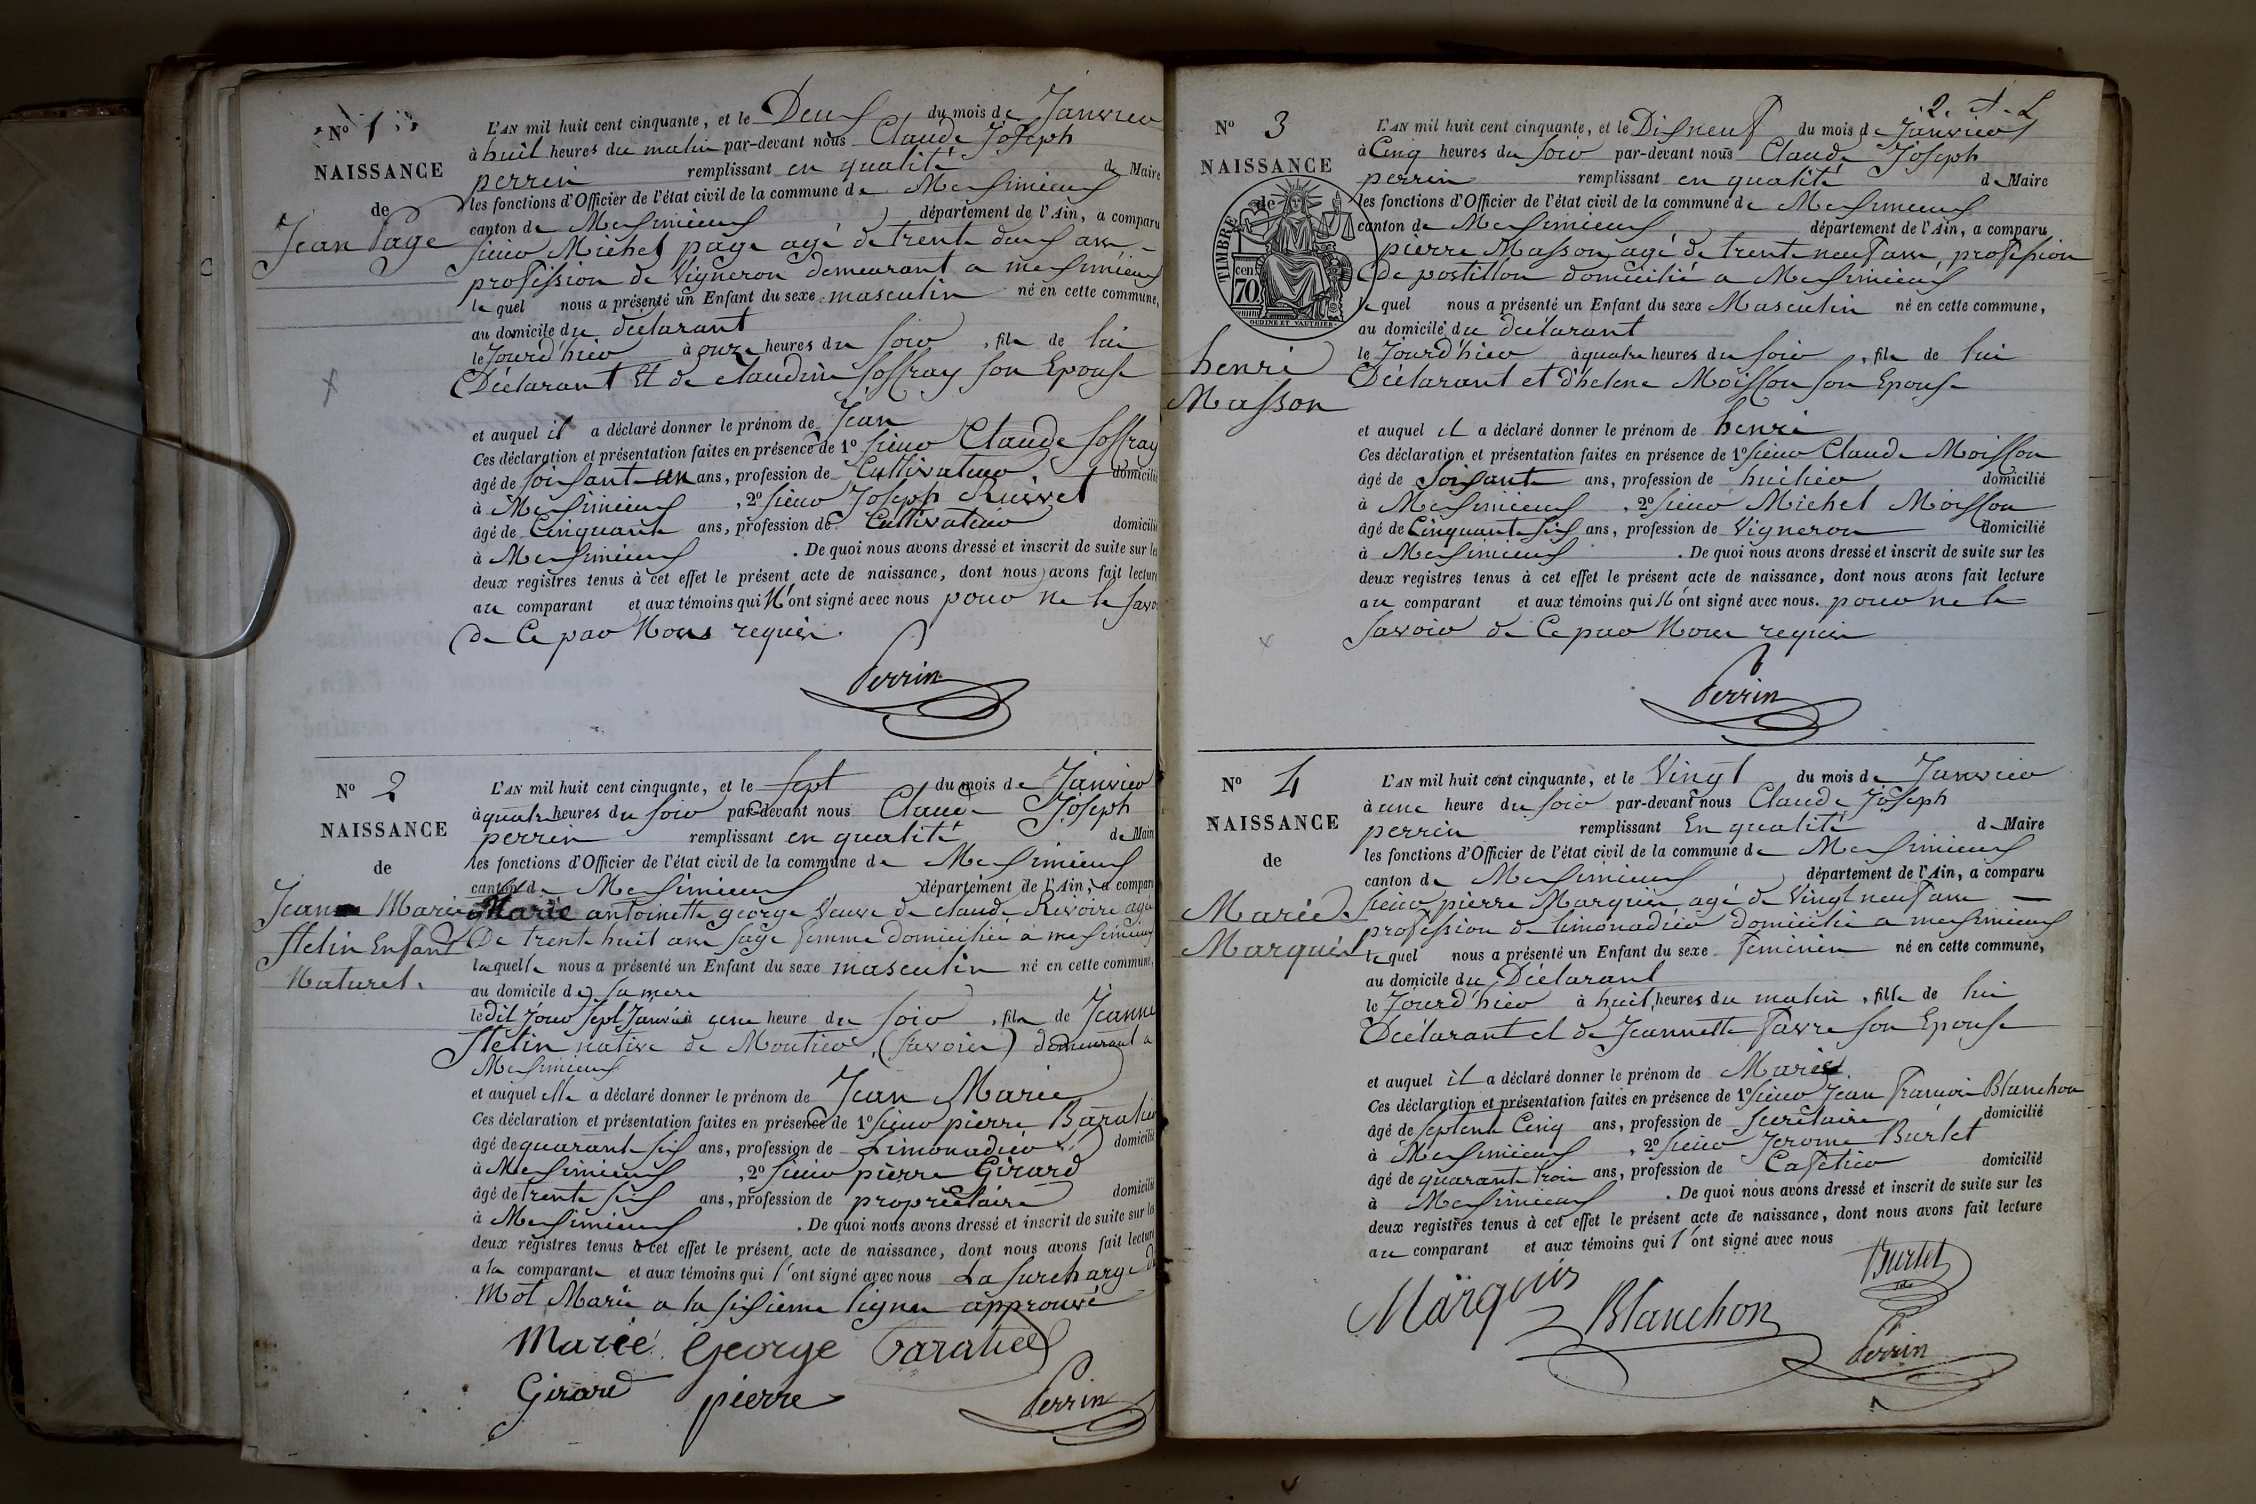 N° 1
NAISSANCE
de
Jean Page
L'AN mil huit cent cinquante, et le Deux du mois de Janvier
à huit heures du matin par-devant nous Claude Joseph
perrin remplissant en qualité de Maire
les fonctions d'Officier de l'état civil de la commune de Meximieux
canton de Meximieux département de l'Ain, a comparu
sieur Michel page agé de trente deux ans
profession de Vigneron demeurant a meximieux
lequel nous a présenté un Enfant du sexe masculin né en cette commune,
au domicile du déclarant
le Jourd'hier à onze heures du soir, fils de lui
Déclarant Et de claudine Joffray son Epouse
et auquel il a déclaré donner le prénom de Jean
Ces déclaration et présentation faites en présence de 1° sieur Claude Joffray
âgé de soixante un ans, profession de Cultivateur domicilié
à Meximieux, 2° sieur Joseph
âgé de Cinquante ans, profession de Cultivateur domicilié
à Meximieux. De quoi nous avons dressé et inscrit de suite sur les
deux registres tenus à cet effet le présent acte de naissance, dont nous avons fait lecture
au comparant et aux témoins qui N'ont signé avec nous pour ne le savoir
de Ce par Nous requis.
Perrin
N° 2
NAISSANCE
de
Jean Marie
Stelin Enfant
Naturel.
L'AN mil huit cent cinquante, et le sept du mois de Janvier
à quatre heures du soir par-devant nous Claude Joseph
perrin remplissant en qualité de Maire
les fonctions d'Officier de l'état civil de la commune de Meximieux
canton de Meximieux département de l'Ain, a comparu
Marie antoinette george Veuve de claude Rivoire agée
De trente huit ans sage femme domiciliée a meximieux
laquelle nous a présenté un Enfant du sexe masculin né en cette commune,
au domicile de sa mere
ledit Jour sept Janvier à une heure du soir, fils de Jeanne
Stelin native de Moutier (savoie) demeurant a
Meximieux
et auquel elle a déclaré donner le prénom de Jean Marie
Ces déclaration et présentation faites en présence de 1° sieur pierre Baratier
âgé de quarante six ans, profession de Limonadier domicilié
à Meximieux, 2° sieur pierre Girard
âgé de trente six ans, profession de propriétaire domicilié
à Meximieux. De quoi nous avons dressé et inscrit de suite sur les
deux registres tenus à cet effet le présent acte de naissance, dont nous avons fait lecture
a la comparante et aux témoins qui l'ont signé avec nous La surcharge Du
Mot Marie a la sixieme ligne approuvé
Marie George Baratier
Girard pierre Perrin
2.
N° 3
NAISSANCE
de
TIMBRE
70 cen
OUDINE ET VAUTHIER
henri
Masson
L'AN mil huit cent cinquante, et le Dixneuf du mois de Janvier
à Cinq heures du soir par-devant nous Claude Joseph
perrin remplissant en qualité de Maire
les fonctions d'Officier de l'état civil de la commune de Meximieux
canton de Meximieux département de l'Ain, a comparu
pierre Masson agé de trente neuf ans, profession
de postillon domicilié a Meximieux
lequel nous a présenté un Enfant du sexe Masculin né en cette commune,
au domicile du déclarant
le Jourd'hier à quatre heures du soir, fils de lui
Déclarant et d'helene Moisson son Epouse
et auquel il a déclaré donner le prénom de henri
Ces déclaration et présentation faites en présence de 1° sieur Claude Moisson
âgé de soixante ans, profession de huilier domicilié
à Meximieux, 2° sieur Michel Moisson
âgé de Cinquante six ans, profession de Vigneron domicilié
à Meximieux. De quoi nous avons dressé et inscrit de suite sur les
deux registres tenus à cet effet le présent acte de naissance, dont nous avons fait lecture
au comparant et aux témoins qui N'ont signé avec nous. pour ne le
savoir de Ce par Nous requis
Perrin
N° 4
NAISSANCE
de
Marie
Marquis
L'AN mil huit cent cinquante, et le Vingt du mois de Janvier
à une heure du soir par-devant nous Claude Joseph
perrin remplissant En qualité de Maire
les fonctions d'Officier de l'état civil de la commune de Meximieux
canton de Meximieux département de l'Ain, a comparu
sieur pierre Marquis agé de Vingt neuf ans
profession de limonadier domicilié a meximieux
lequel nous a présenté un Enfant du sexe feminin né en cette commune,
au domicile du Déclarant
le Jourd'hier à huit heures du matin, fille de lui
Déclarant et de Jeannette Favre son Epouse
et auquel il a déclaré donner le prénom de Marie
Ces déclaration et présentation faites en présence de 1° sieur Jean François Blanchon
âgé de septente Cinq ans, profession de secrétaire domicilié
à Meximieux, 2° sieur Jerome Burlet
âgé de quarante trois ans, profession de Cafetier domicilié
à Meximieux. De quoi nous avons dressé et inscrit de suite sur les
deux registres tenus à cet effet le présent acte de naissance, dont nous avons fait lecture
au comparant et aux témoins qui l'ont signé avec nous
Burlet
Marquis Blanchon
Perrin